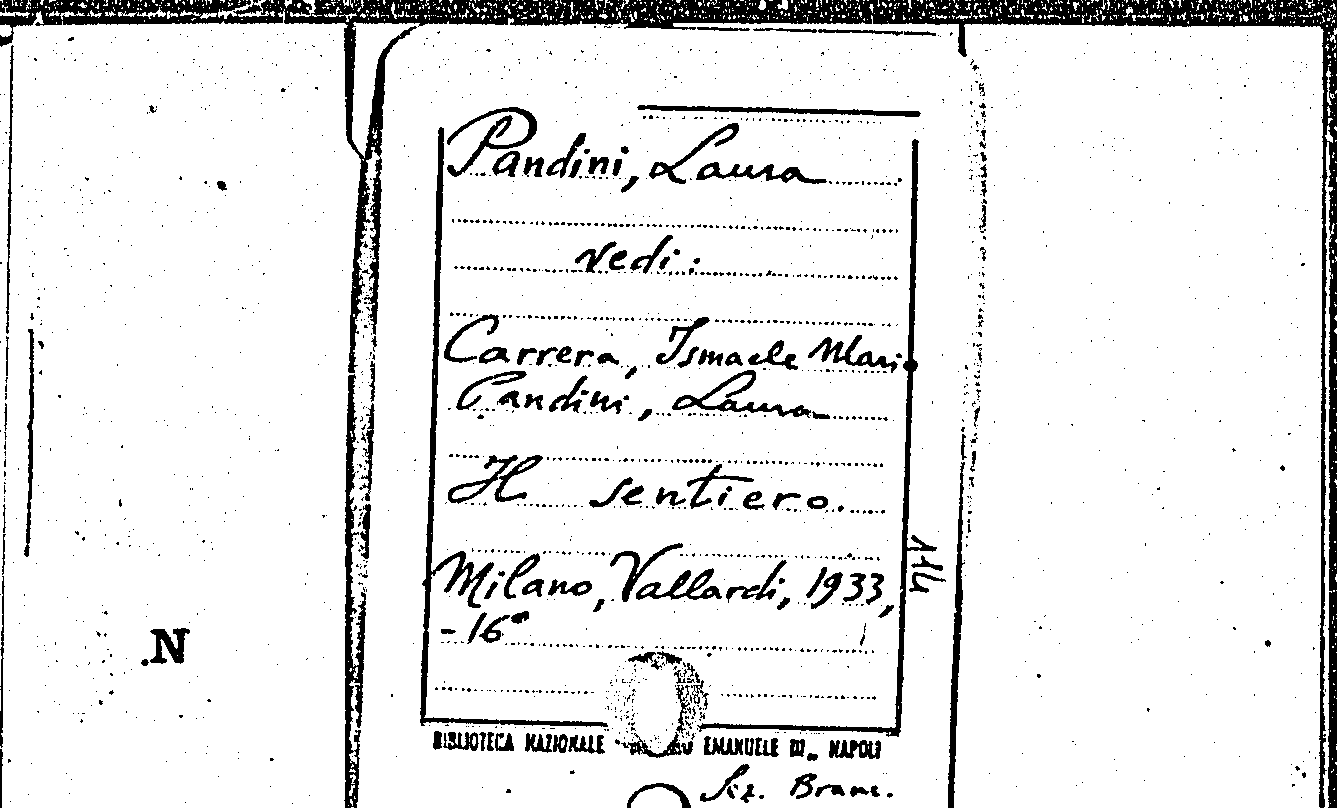 Pandini, Laura
vedi:
Carrera, Ismaele Mario
Pandini, Laura
Il sentiero.
Milano, Vallardi, 1933,
-16°
114
.N
BIBLIOTECA NAZIONALE EMANUELE III„ NAPOLI
Sez. Branc.